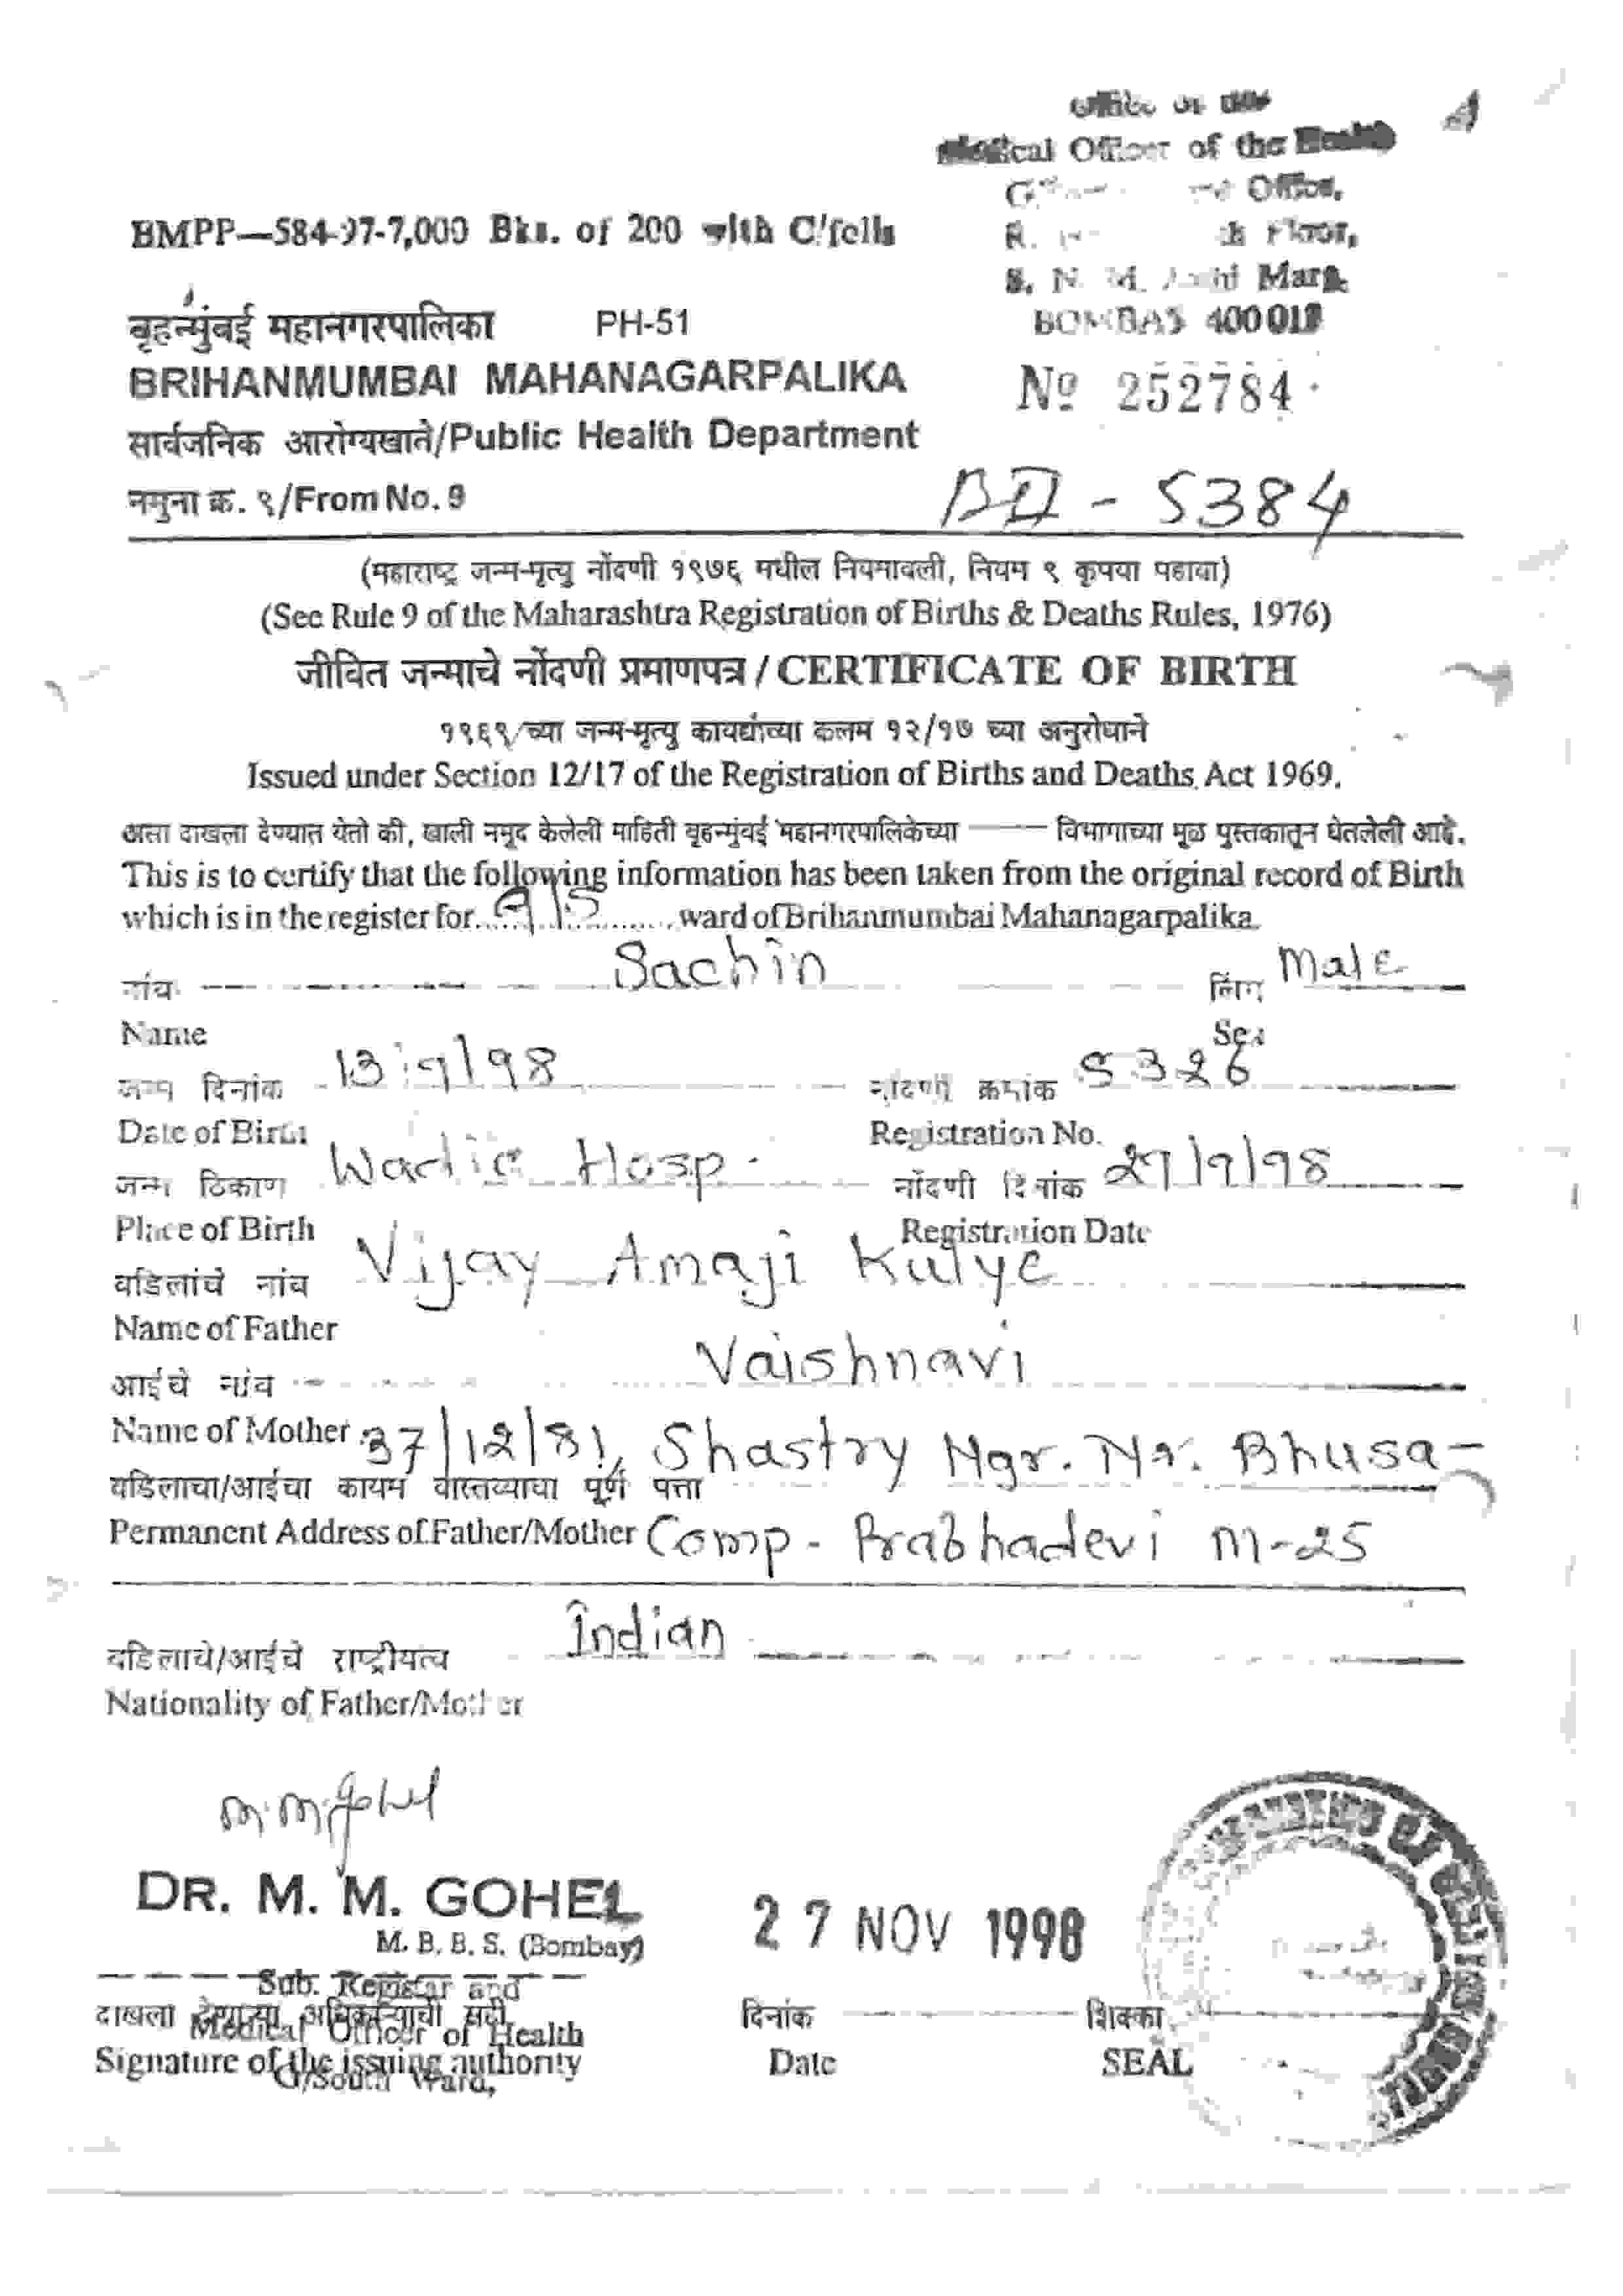 Office of the
Medical Officer of the Health
Office,
Floor,
S. N. M. Marg.
BOMBAY 400 013
BMPP—584-97-7,000 Bks. of 200 with C/foils
बृहन्मुंबई महानगरपालिका PH-51
BRIHANMUMBAI MAHANAGARPALIKA
Nº 252784
सार्वजनिक आरोग्यखाते/Public Health Department
नमुना क्र. ९/From No. 9
BII - 5384
(महाराष्ट्र जन्म-मृत्यु नोंदणी १९७६ मधील नियमावली, नियम ९ कृपया पहावा)
(See Rule 9 of the Maharashtra Registration of Births & Deaths Rules, 1976)
जीवित जन्माचे नोंदणी प्रमाणपत्र / CERTIFICATE OF BIRTH
१९६९/च्या जन्म-मृत्यु कायद्यांच्या कलम १२/१७ च्या अनुरोधाने
Issued under Section 12/17 of the Registration of Births and Deaths Act 1969.
असा दाखला देण्यात येतो की, खाली नमूद केलेली माहिती बृहन्मुंबई महानगरपालिकेच्या —— विभागाच्या मूळ पुस्तकातून घेतलेली आहे.
This is to certify that the following information has been taken from the original record of Birth
which is in the register for G/S ward of Brihanmumbai Mahanagarpalika.
नांव Sachin लिंग Male
Name Sex
जन्म दिनांक 13/9/98 नोंदणी क्रमांक 5326
Date of Birth Registration No.
जन्म ठिकाण Wadia Hosp. नोंदणी दिनांक 27/9/98
Place of Birth Registration Date
वडिलांचे नांव Vijay Amaji Kulye
Name of Father
आईचे नांव Vaishnavi
Name of Mother
37/12/81, Shastry Ngr. Nr. Bhusa-
वडिलाचा/आईचा कायम वास्तव्याचा पूर्ण पत्ता
Permanent Address of Father/Mother Comp. Prabhadevi M-25
वडिलाचे/आईचे राष्ट्रीयत्व Indian
Nationality of Father/Mother
M.M.Gohel
DR. M. M. GOHEL
M. B. B. S. (Bombay)
27 NOV 1998
Sub. Registar and
दाखला देणाऱ्या अधिकाऱ्याची सही
दिनांक शिक्का
Medical Officer of Health
Signature of the issuing authority Date SEAL
G/South Ward,